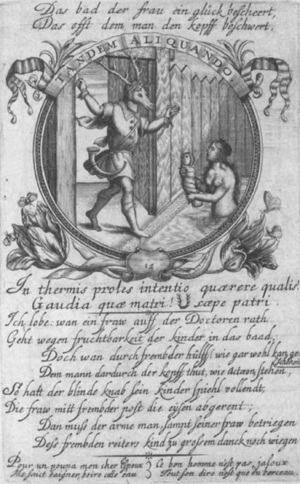 Das bad der frau ein glück bescheert,
Das offt dem man den kopff beschwert.
TANDEM ALIQUANDO
15
In thermis proles intentio quærere qualis!
Gaudia quæ matri! sæpe patri
Ich lobe: wan ein fraw auff der Doctoren rath
Geht wegen fruchtbarkeit der kinder in das baad;
Doch wan durch frembde hülff; wie gar wohl kan
Dem mann dardurch der kopff thut, wie Acteon stehen,
So hatt der blinde knab sein kinder spiehl vollendt,
Die fraw mitt frembder post die eysen abgerent;
Dan mus der arme man, sampt seiner fraw betriegen
Dess frembden reiters kind zu grossem danck noch wiegen
Pour un poupa mon cher Epoux
baigner, boire cette eau
Ce bon homme n'est pas jaloux
Tout son dire n'est que du berceau